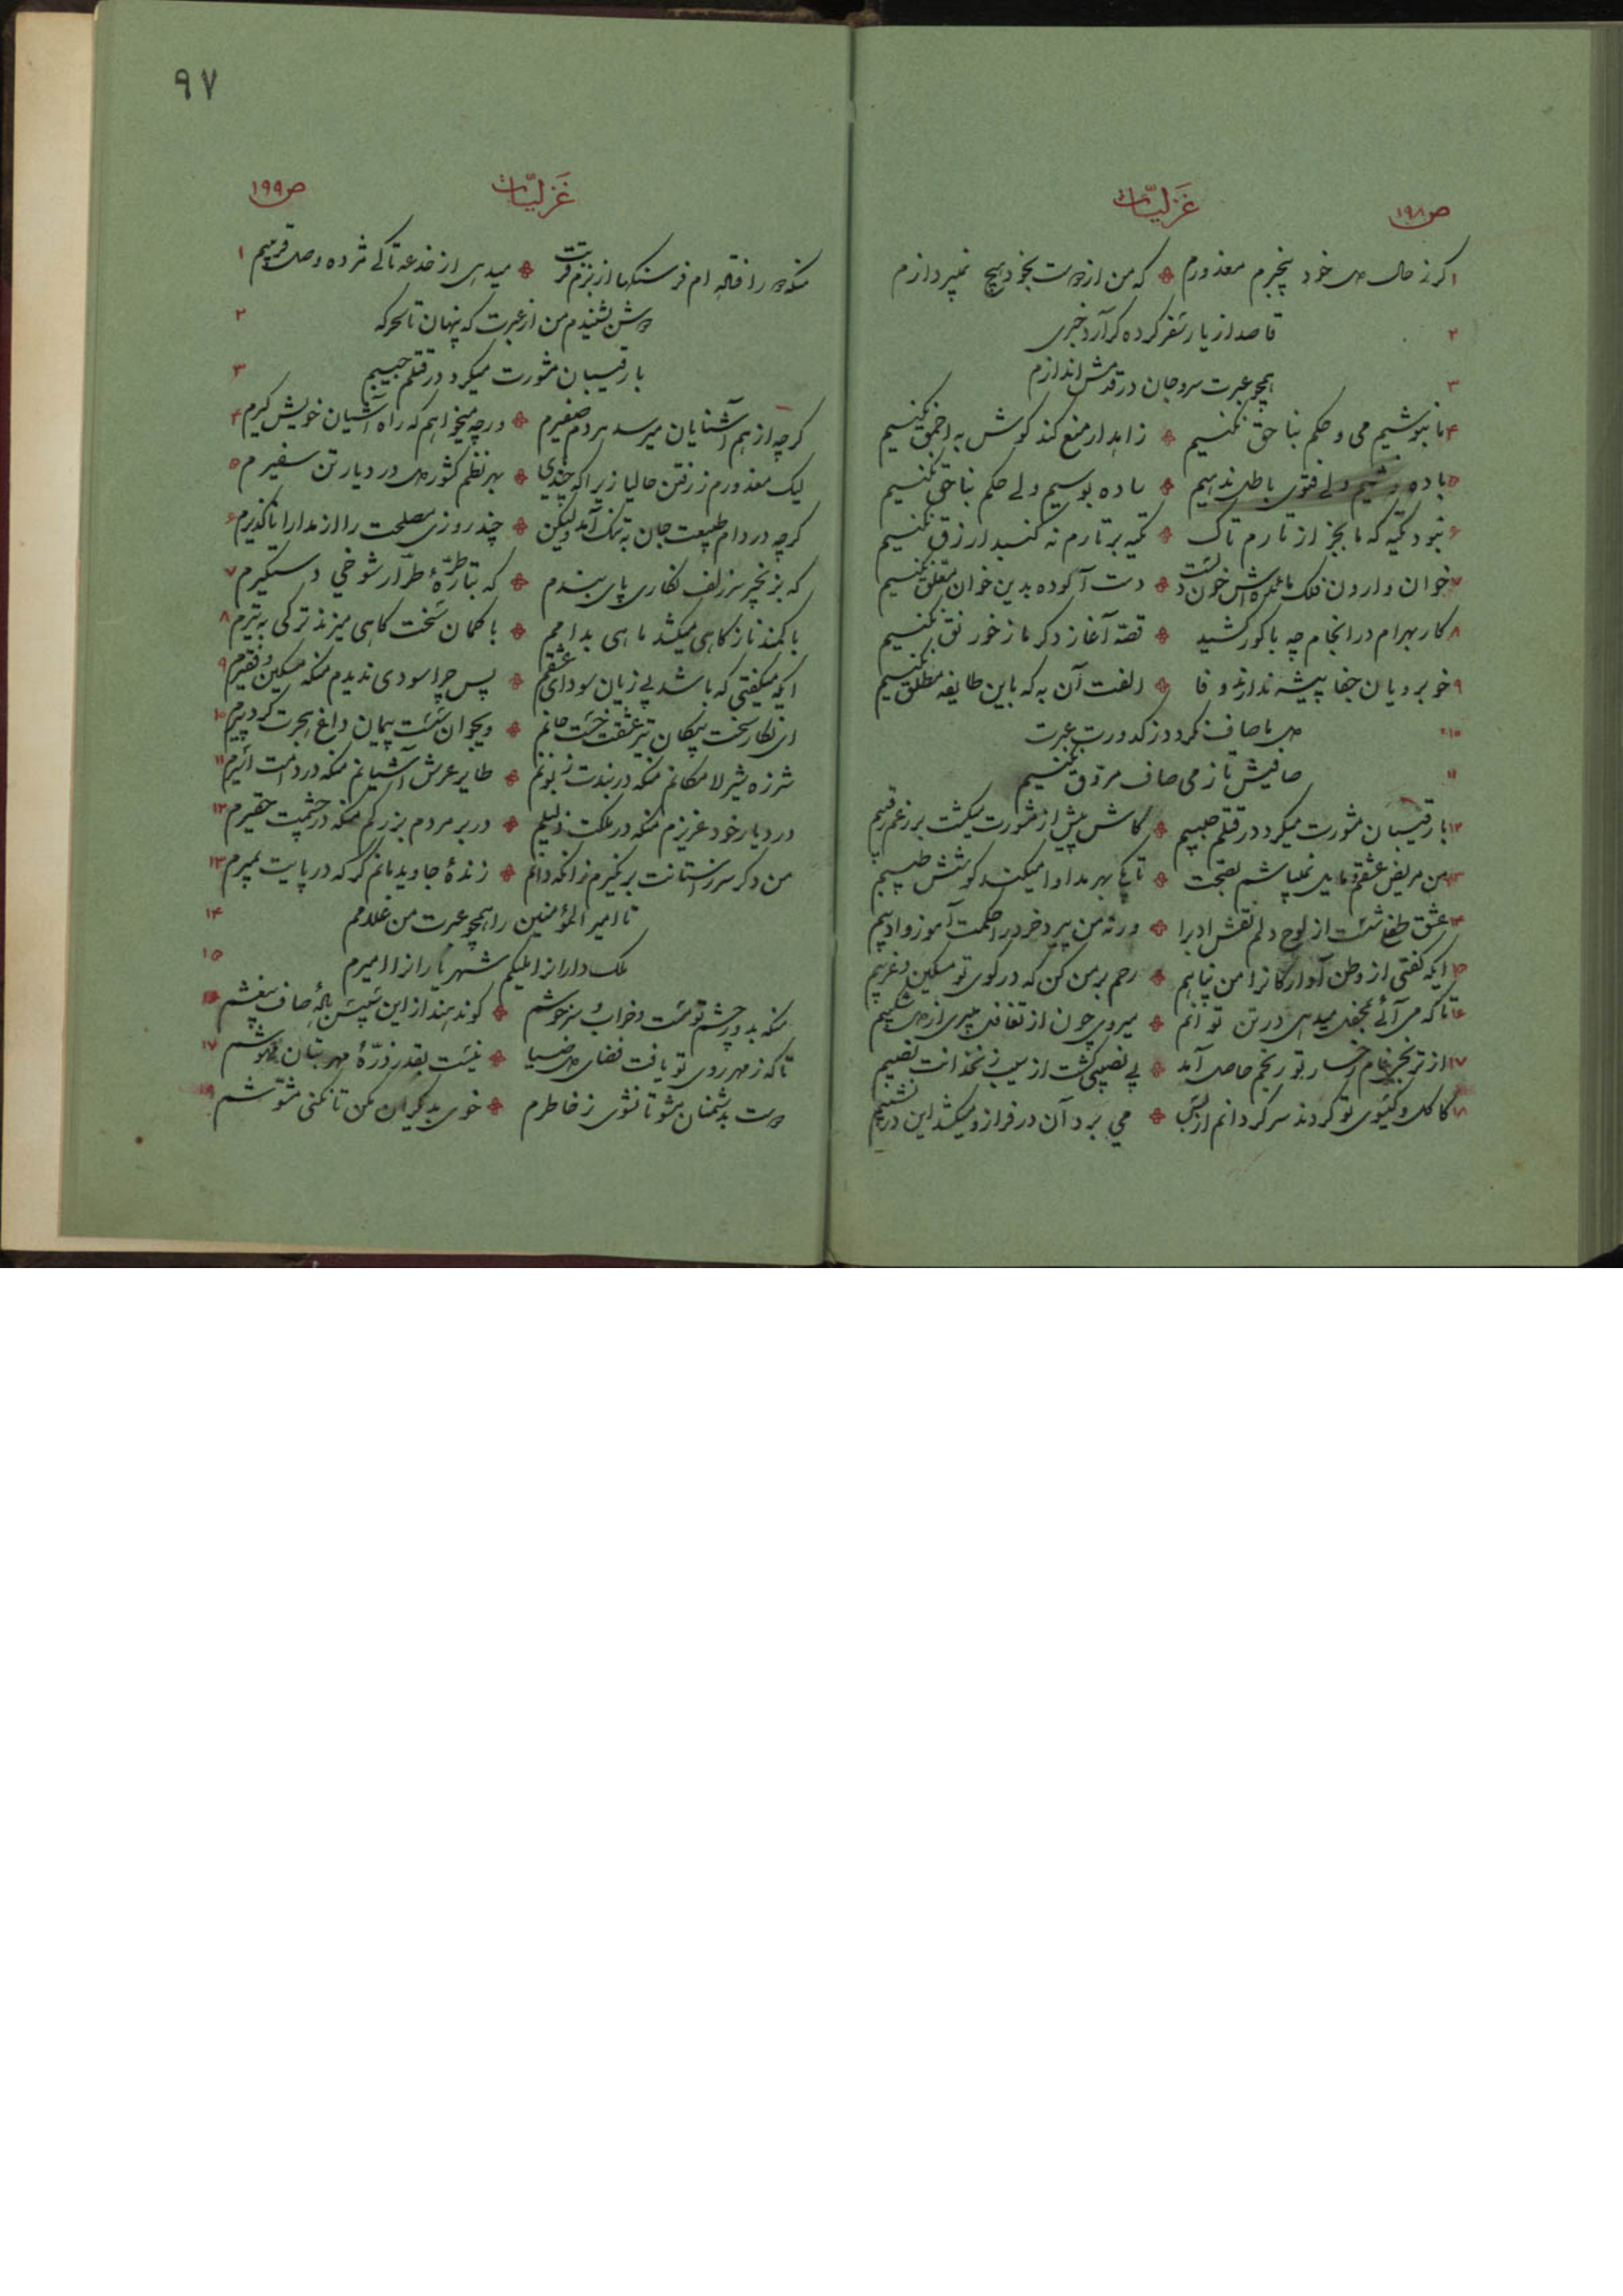 ص ۱۹۸
غزلیات
۱ اکر ز حال دل خود بیخبرم معذورم که من از دوست بخود هیچ نمیپردازم
۲ قاصد از یار سفر کرده کر آرد خبری
۳ همچو عبرت سر و جان در قدمش اندازم
۴ ما بنوشیم می و حکم بناحق نکنیم زاهد ار منع کند کوش به احمق نکنیم
۵ باده نوشیم ولی فتوی باطل ندهیم ساده بوسیم ولی حکم بناحق نکنیم
۶ نبود تکیه که ما بجز از تارم تاک تکیه بر تارم نه کنبد ازرق نکنیم
۷ خوان وارون فلک مائده‌اش خون دلست دست آلوده بدین خوان معلق نکنیم
۸ کار بهرام در انجام چه با کور کشید قصه آغاز دکر ما ز خورنق نکنیم
۹ خوبرویان جفا پیشه ندارند وفا الفت آن به که باین طایفه مطلق نکنیم
۱۰ دل ما صاف نکردد ز کدورت عبرت
۱۱ صافیش تا ز می صاف مروق نکنیم
۱۲ با رقیبان مشورت میکرد در قتلم حبیبم کاش پیش از مشورت میکشت بر رغم رقیبم
۱۳ من مریض عشقم و مایل نمیباشم بصحت تا بکی بهر مداوا میکند کوشش طبیبم
۱۴ عشق طفلی شست از لوح دلم نقش ادب را ورنه من پیر خرد را حکمت آموز و ادیبم
۱۵ ایکه کفتی از وطن آوارکانرا من پناهم رحم بر من کن که در کوی تو مسکین و غریبم
۱۶ تا که می آئی بمحفل میدهی در تن توانم میروی چون از تغافل میبری از دل شکیبم
۱۷ از ترنج رخسار تو رنجم حاصل آمد بی نصیبی کشت از سیب زنخدانت نصیبم
۱۸ کاکل و کیسوی تو کردند سرکردانم از بس می برد آن در فراز و میکشد این در نشیبم
۹۷
غزلیات
ص ۱۹۹
۱ منکه دور افتاده‌ام فرسنکها از بزم قربت میدهی از خدعه تا کی مژده وصل قریبم
۲ دوش بشنیدم من از عبرت که پنهان تا سحرکه
۳ با رقیبان مشورت میکرد در قتلم حبیبم
۴ کرچه از هم آشنایان میرسد هر دم صفیرم ورچه میخواهم که راه آشیان خویش کیرم
۵ لیک معذورم ز رفتن حالیا زیرا که چندی بهر نظم کشور دل در دیار تن سفیرم
۶ کرچه در دام طبیعت جان به تنک آمد ولیکن چند روزی مصلحت را از مدارا ناکزیرم
۷ که بزنجیر سر زلف نکاری پای بندم که بتار طرّهٔ طرّار شوخی دستکیرم
۸ با کمند ناز کاهی میکشد ماهی بدامم با کمان سخت کاهی میزند ترکی به تیرم
۹ ایکه میکفتی که باشد بی زیان سودای عشقم پس چرا سودی ندیدم منکه مسکین و فقیرم
۱۰ ای نکار سخت پیکان تیر عشقت خست جانم ویجوان سست پیمان داغ هجرت کرد پیرم
۱۱ شرزه شیر لامکانم منکه در بندت زبونم طایر عرش آشیانم منکه در دامت اسیرم
۱۲ در دیار خود عزیزم منکه در ملکت ذلیلم در بر مردم بزرکم منکه در چشمت حقیرم
۱۳ من دکر سر ز آستانت بر نکیرم زانکه دانم زندهٔ جاوید مانم کر که در پایت بمیرم
۱۴ تا امیر المؤمنین را همچو عبرت من غلامم
۱۵ ملک دارا را ملیکم شهریاران را امیرم
۱۶ منکه بدور چشم تو مست و خراب و سرخوشم کو ندهند از این سپس بالهٔ صاف بیغشم
۱۷ تا که ز مهر روی تو یافت فضای دل ضیا نیست بقدر ذرّهٔ مهر بتان مهوشم
۱۸ دوست بدشمنان مشو تا نشوی ز خاطرم خوی بدیکران مکن تا نکنی مشوّشم